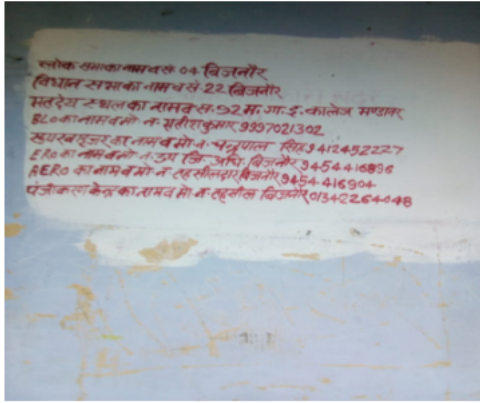 लोक सभा का नाम व सं 04 बिजनौर
विधान सभा का नाम व सं 22 बिजनौर
मतदेय स्थल का नाम व स. 92 म. गा. इ. कालेज मण्डावर
BLO का नाम व मो न. सतीश कुमार 9997021302
सुपरवाइजर का नाम व मो न. चन्द्रपाल सिंह 9412492227
ERO का नाम व मो न. उप जि. अधि. बिजनौर 9454416896
AERO का नाम व मो न. तहसीलदार बिजनौर 9454416904
पंजीकरण केन्द्र का नाम व मो न. तहसील बिजनौर 01342264048